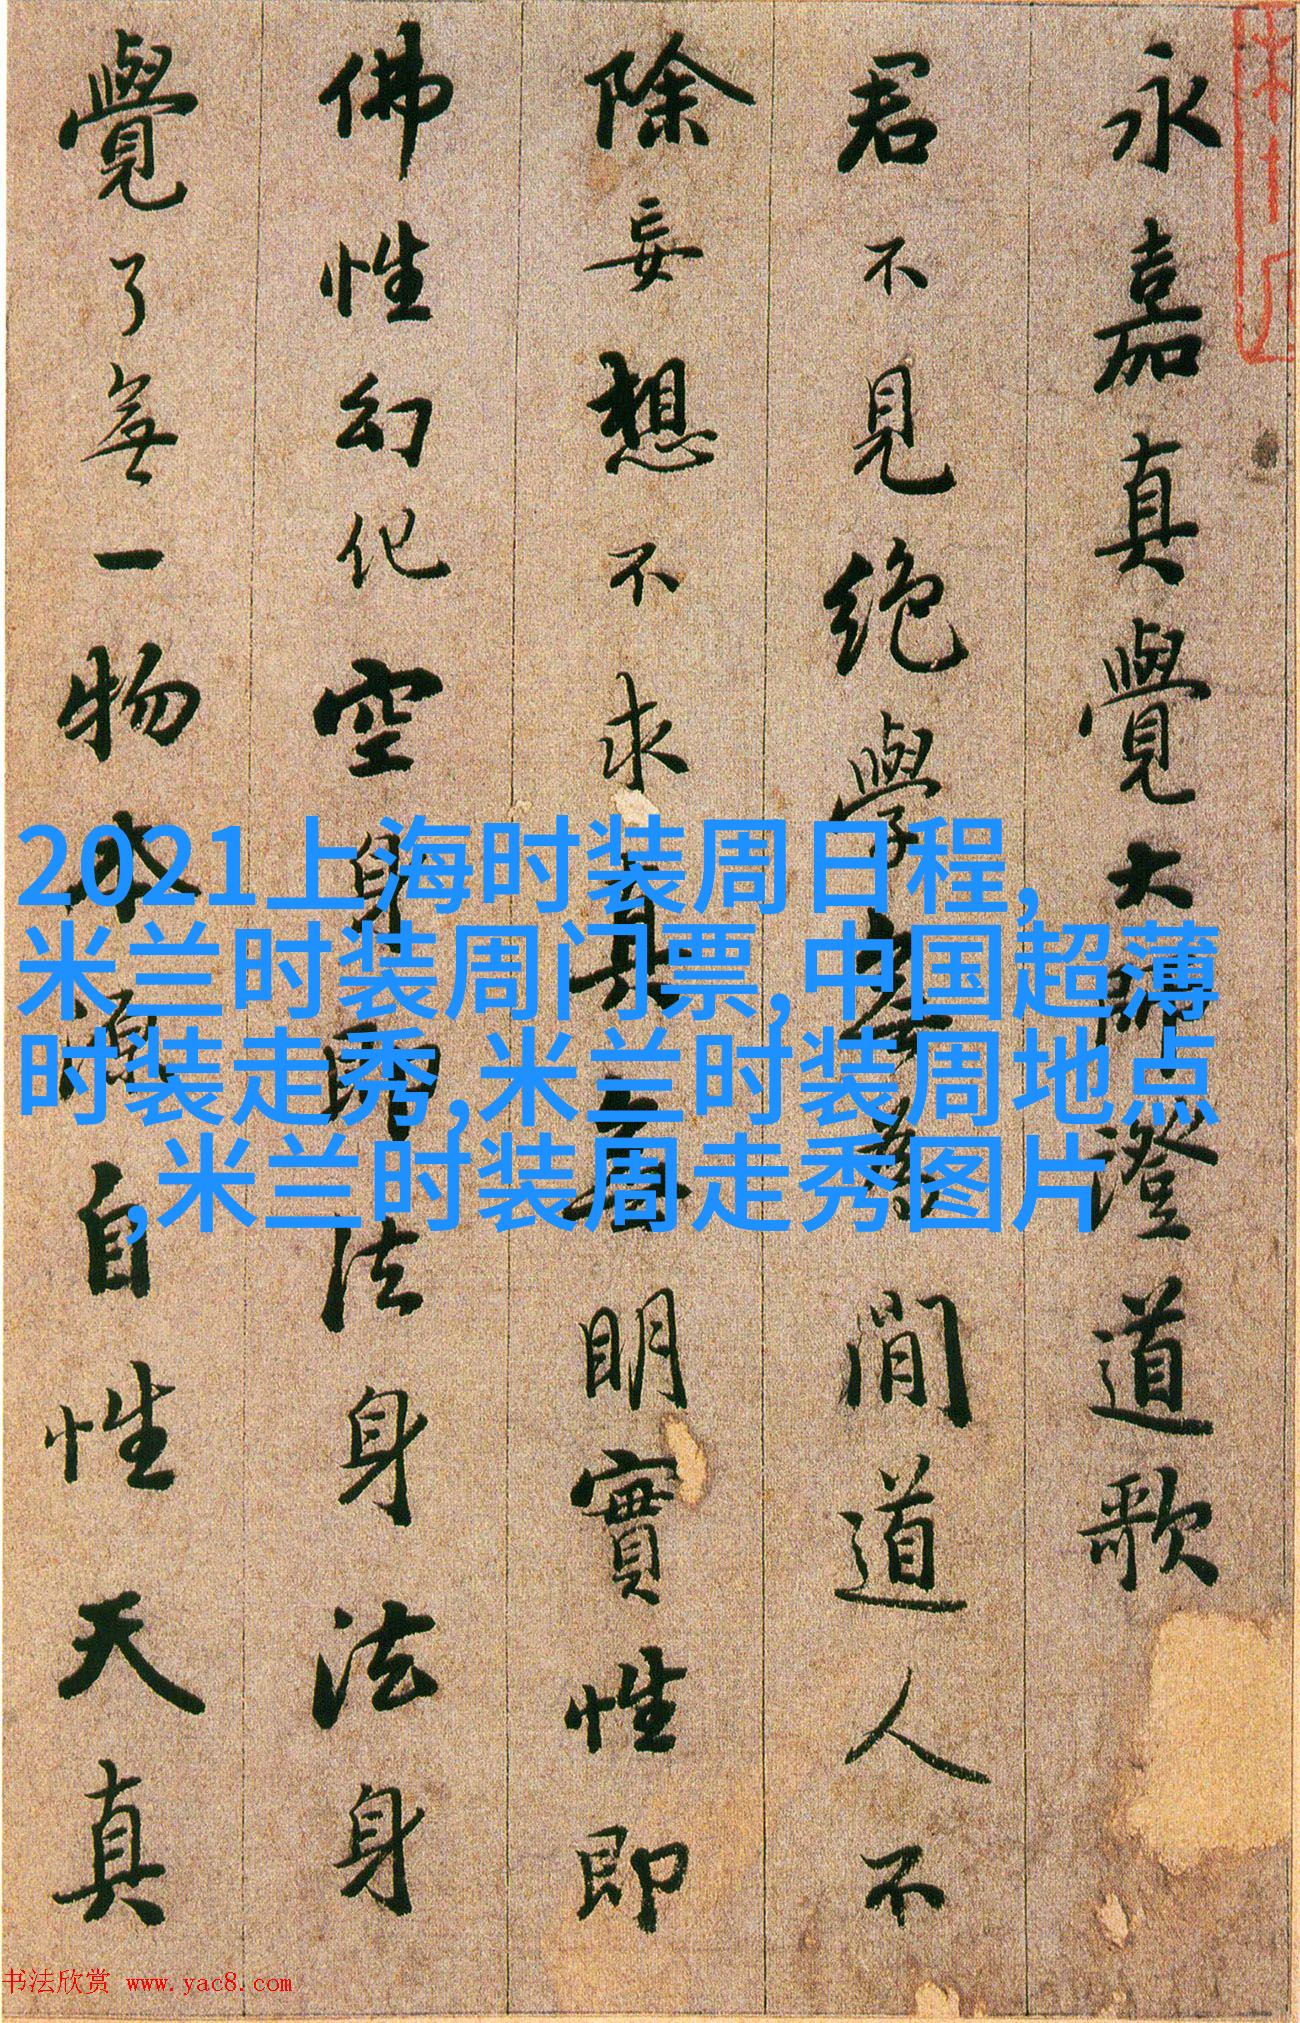 永嘉真覺大師證道歌
君不見絕學無為閒道人不
除妄想不求真無明實性即
佛性幻化空身即法身法身
覺了無一物本源自性天真
2021上海时装周日程,
米兰时装周门票,中国超薄
时装走秀,米兰时装周地点
,米兰时装周走秀图片
书法欣赏 www.yac8.com